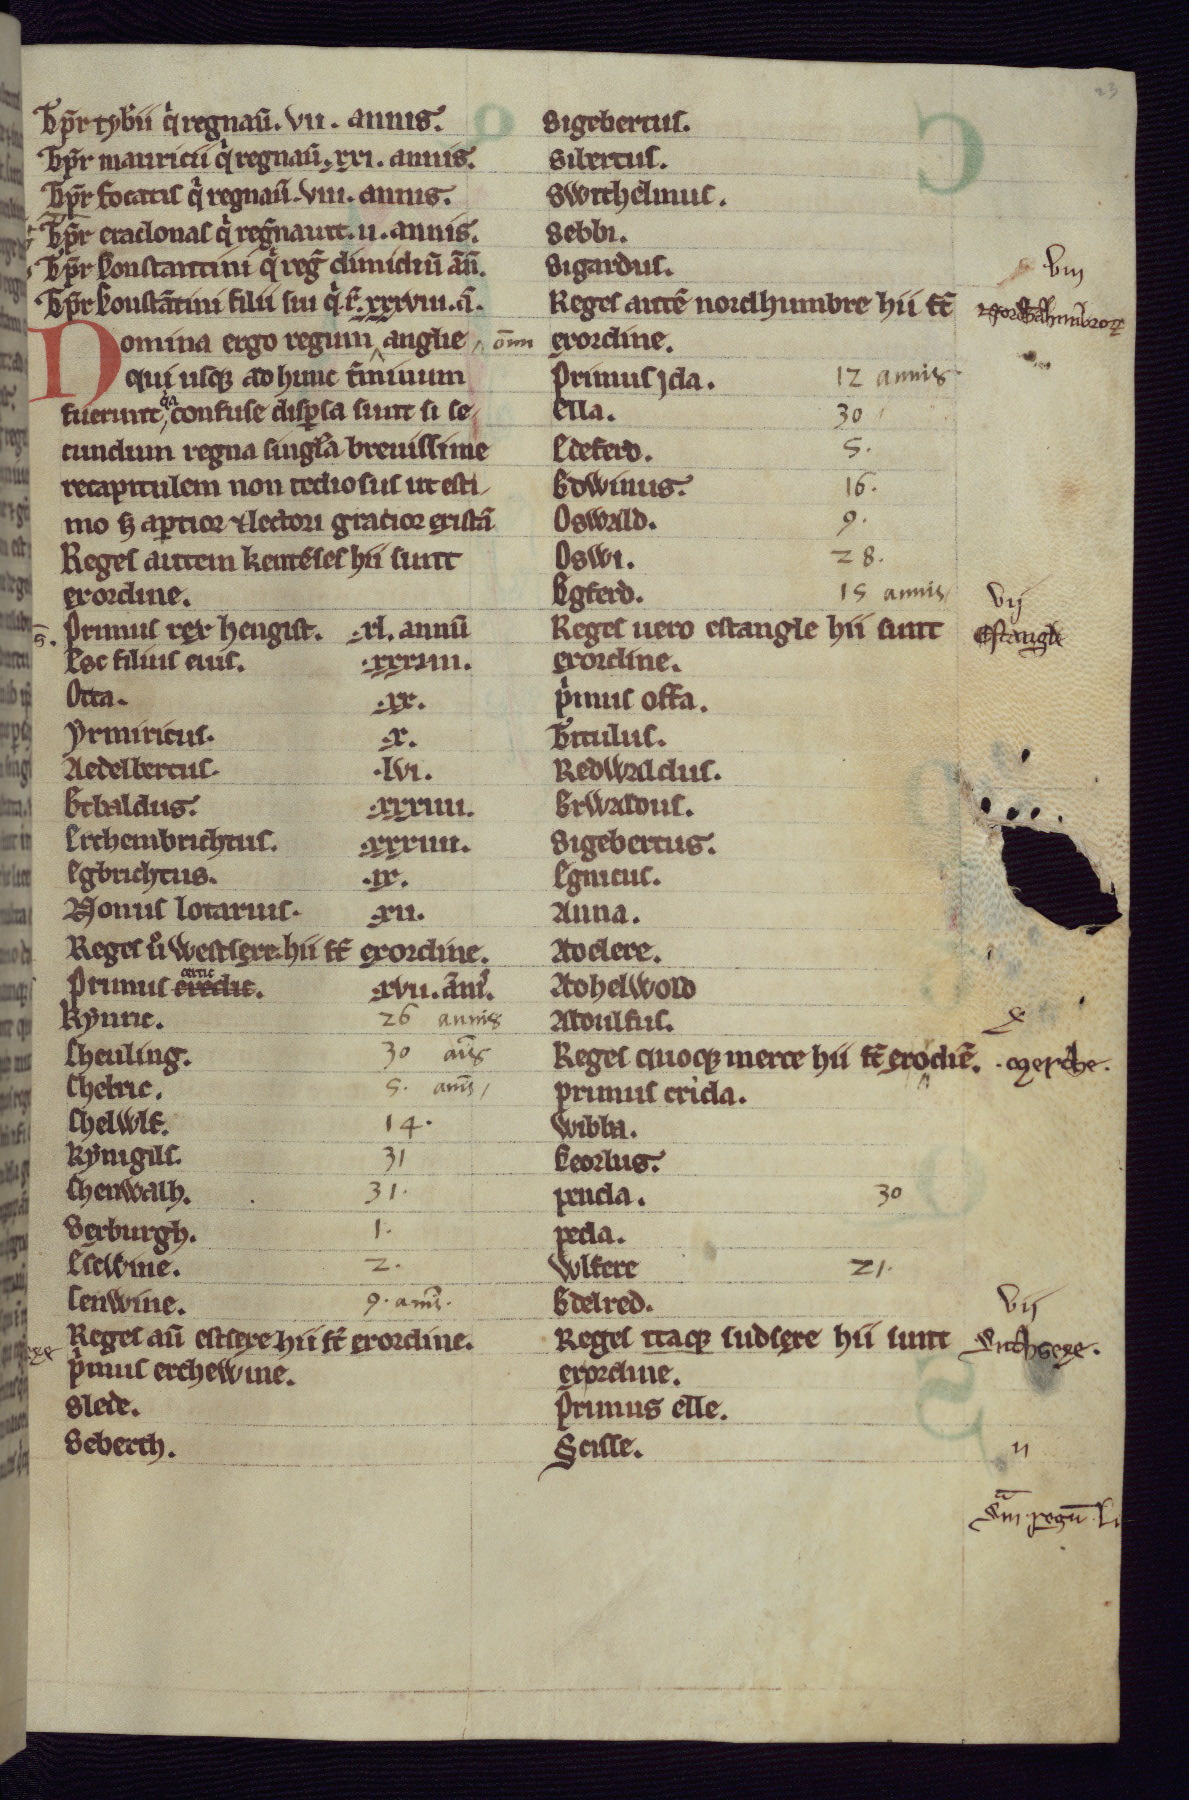 Tp̄r tyb'ii q' regnau'. vii. annis.
Tp̄r mauricii q' regnau'. xxi. annis.
Tp̄r focatis q' regnau'. viii. annis.
Tp̄r eraclonas q' regnauit. ii. annis.
Tp̄r Constantini q' reg̃ dimidiū ān̄.
Tp̄r Constātini filii sui q' r̄. xxxviii. ā.
Nomina ergo regum anglie, om̄
qui usq; ad hunc t̄minum
fuerunt, q̄a confuse disp̱sa sunt si se
cundum regna singl'a breuissime
recapitulem non tediosus ut esti
mo sȝ apertior ⁊ lectori gratior existā
Reges autem kentēses hii sunt
exordine.
Primus rex hengist. .xl. annū
Esc filius eius. .xxxiiii.
Octa. .xx.
Yrmiricus. .x.
Aedelbertus. .lvi.
Edbaldus. .xxiiii.
Erchembrichtus. .xxxiiii.
Egbrichtus. .ix.
Nonus lotarius. .xii.
Reges u' westsexe. hii st̄ exordine.
Primus credic. certic .xvii. annis.
Kynric. 26 annis
Cheuling. 30 an̄s
Chelric. 5. an̄is
Chelwlf. 14.
Kynigils. 31
Chenwalh. 31.
Sexburgh. 1.
Escwine. 2.
Cenwine. 9. an̄is.
Reges au' estsexe hii st̄ exordine.
p'mus erchewine.
Slede.
Seberth.
Sigebertus.
Sibertus.
Swithelmus.
Sebbi.
Sigardus.
Reges autē nordhumbre hii st̄
exordine.
Primus Ida. 12 annis
Ella. 30
Edelferd. 5.
Edwinus. 16.
Oswald. 9.
Oswi. 28.
Egferd. 15 annis
Reges uero estangle hii sunt
exordine.
p'mus offa.
Titulus.
Redwaldus.
Erwaldus.
Sigebertus.
Egnicus.
Anna.
Adelere.
Adhelwold
Aldulfus.
Reges quoq; merce hii st̄ exordiē.
primus crida.
Wibba.
Ceorlus.
penda. 30
peda.
Wlfere 21.
Edelred.
Reges itaq; sudsexe hii sunt
exordine.
Primus elle.
Scisse.
23
viii
vij
Estangle
x
.merche.
vij
Suthsexe.
ii